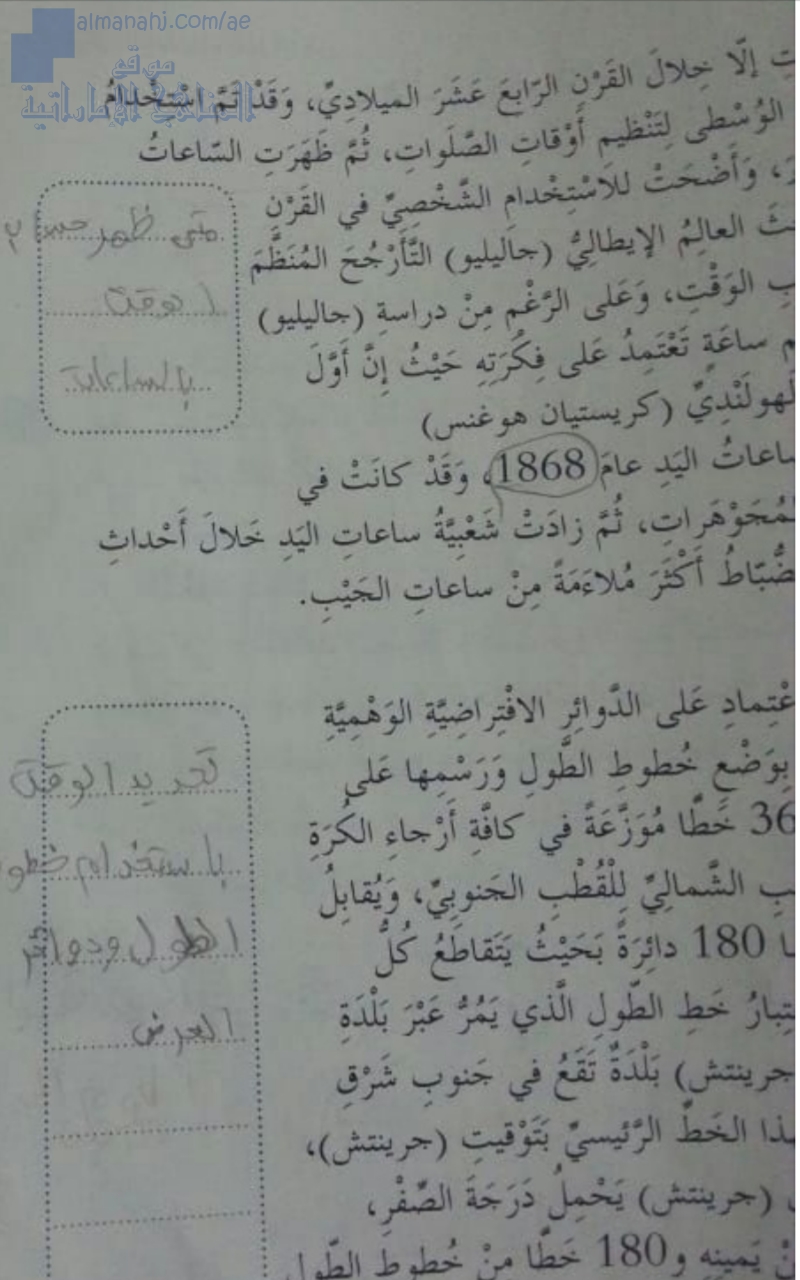 almanahj.com/ae
موقع
المناهج الإماراتية
إلّا خِلالَ القَرْنِ الرّابِعَ عَشَرَ الميلادِيِّ، وَقَدْ تَمَّ اسْتِخْدامُ
الوُسْطى لِتَنْظيمِ أَوْقاتِ الصَّلَواتِ، ثُمَّ ظَهَرَتِ السّاعاتُ
وَأَضْحَتْ للاسْتِخْدامِ الشَّخْصِيِّ في القَرْنِ
العالِمُ الإيطالِيُّ (جاليليو) التَّأَرْجُحَ المُنَظَّمَ
الوَقْتِ، وَعَلى الرَّغْمِ مِنْ دراسةِ (جاليليو)
ساعَةٍ تَعْتَمِدُ عَلى فِكْرَتِهِ حَيْثُ إِنَّ أَوَّلَ
(كريستيان هوغنس)
اليَدِ عامَ 1868، وَقَدْ كانَتْ في
ثُمَّ زادَتْ شَعْبِيَّةُ ساعاتِ اليَدِ خَلالَ أَحْداثِ
أَكْثَرَ مُلاءَمَةً مِنْ ساعاتِ الجَيْبِ.
متى ظهر حساب
الوقت
بالساعات
عَلى الدَّوائِرِ الافْتِراضِيَّةِ الوَهْمِيَّةِ
بِوَضْعِ خُطوطِ الطّولِ وَرَسْمِها عَلى
36 خَطًّا مُوَزَّعَةً في كافَّةِ أَرْجاءِ الكُرَةِ
الشَّمالِيِّ لِلْقُطْبِ الجَنوبِيِّ، وَيُقابِلُ
180 دائِرَةً بَحَيْثُ يَتَقاطَعُ كُلُّ
خَطِ الطّولِ الَّذي يَمُرُّ عَبْرَ بَلْدَةِ
جرينتش) بَلْدَةٌ تَقَعُ في جَنوبِ شَرْقِ
الخَطِّ الرَّئيسيِّ بَتَوْقيتِ (جرينتش)،
(جرينتش) يَحْمِلُ دَرَجَةَ الصِّفْرِ،
يَمينِه و180 خَطًّا مِنْ خُطوطِ الطّول
تحديد الوقت
باستخدام خطو
الطول ودوائر
العرض